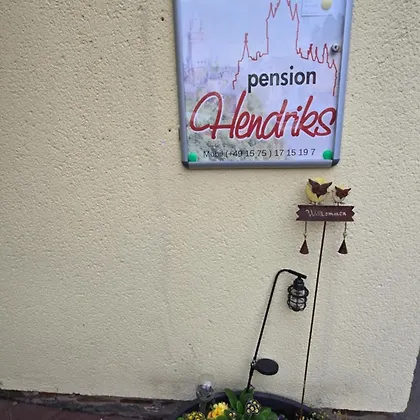 pension
Hendriks
Mobil (+49 15 75 ) 17 15 19 7
Willkommen